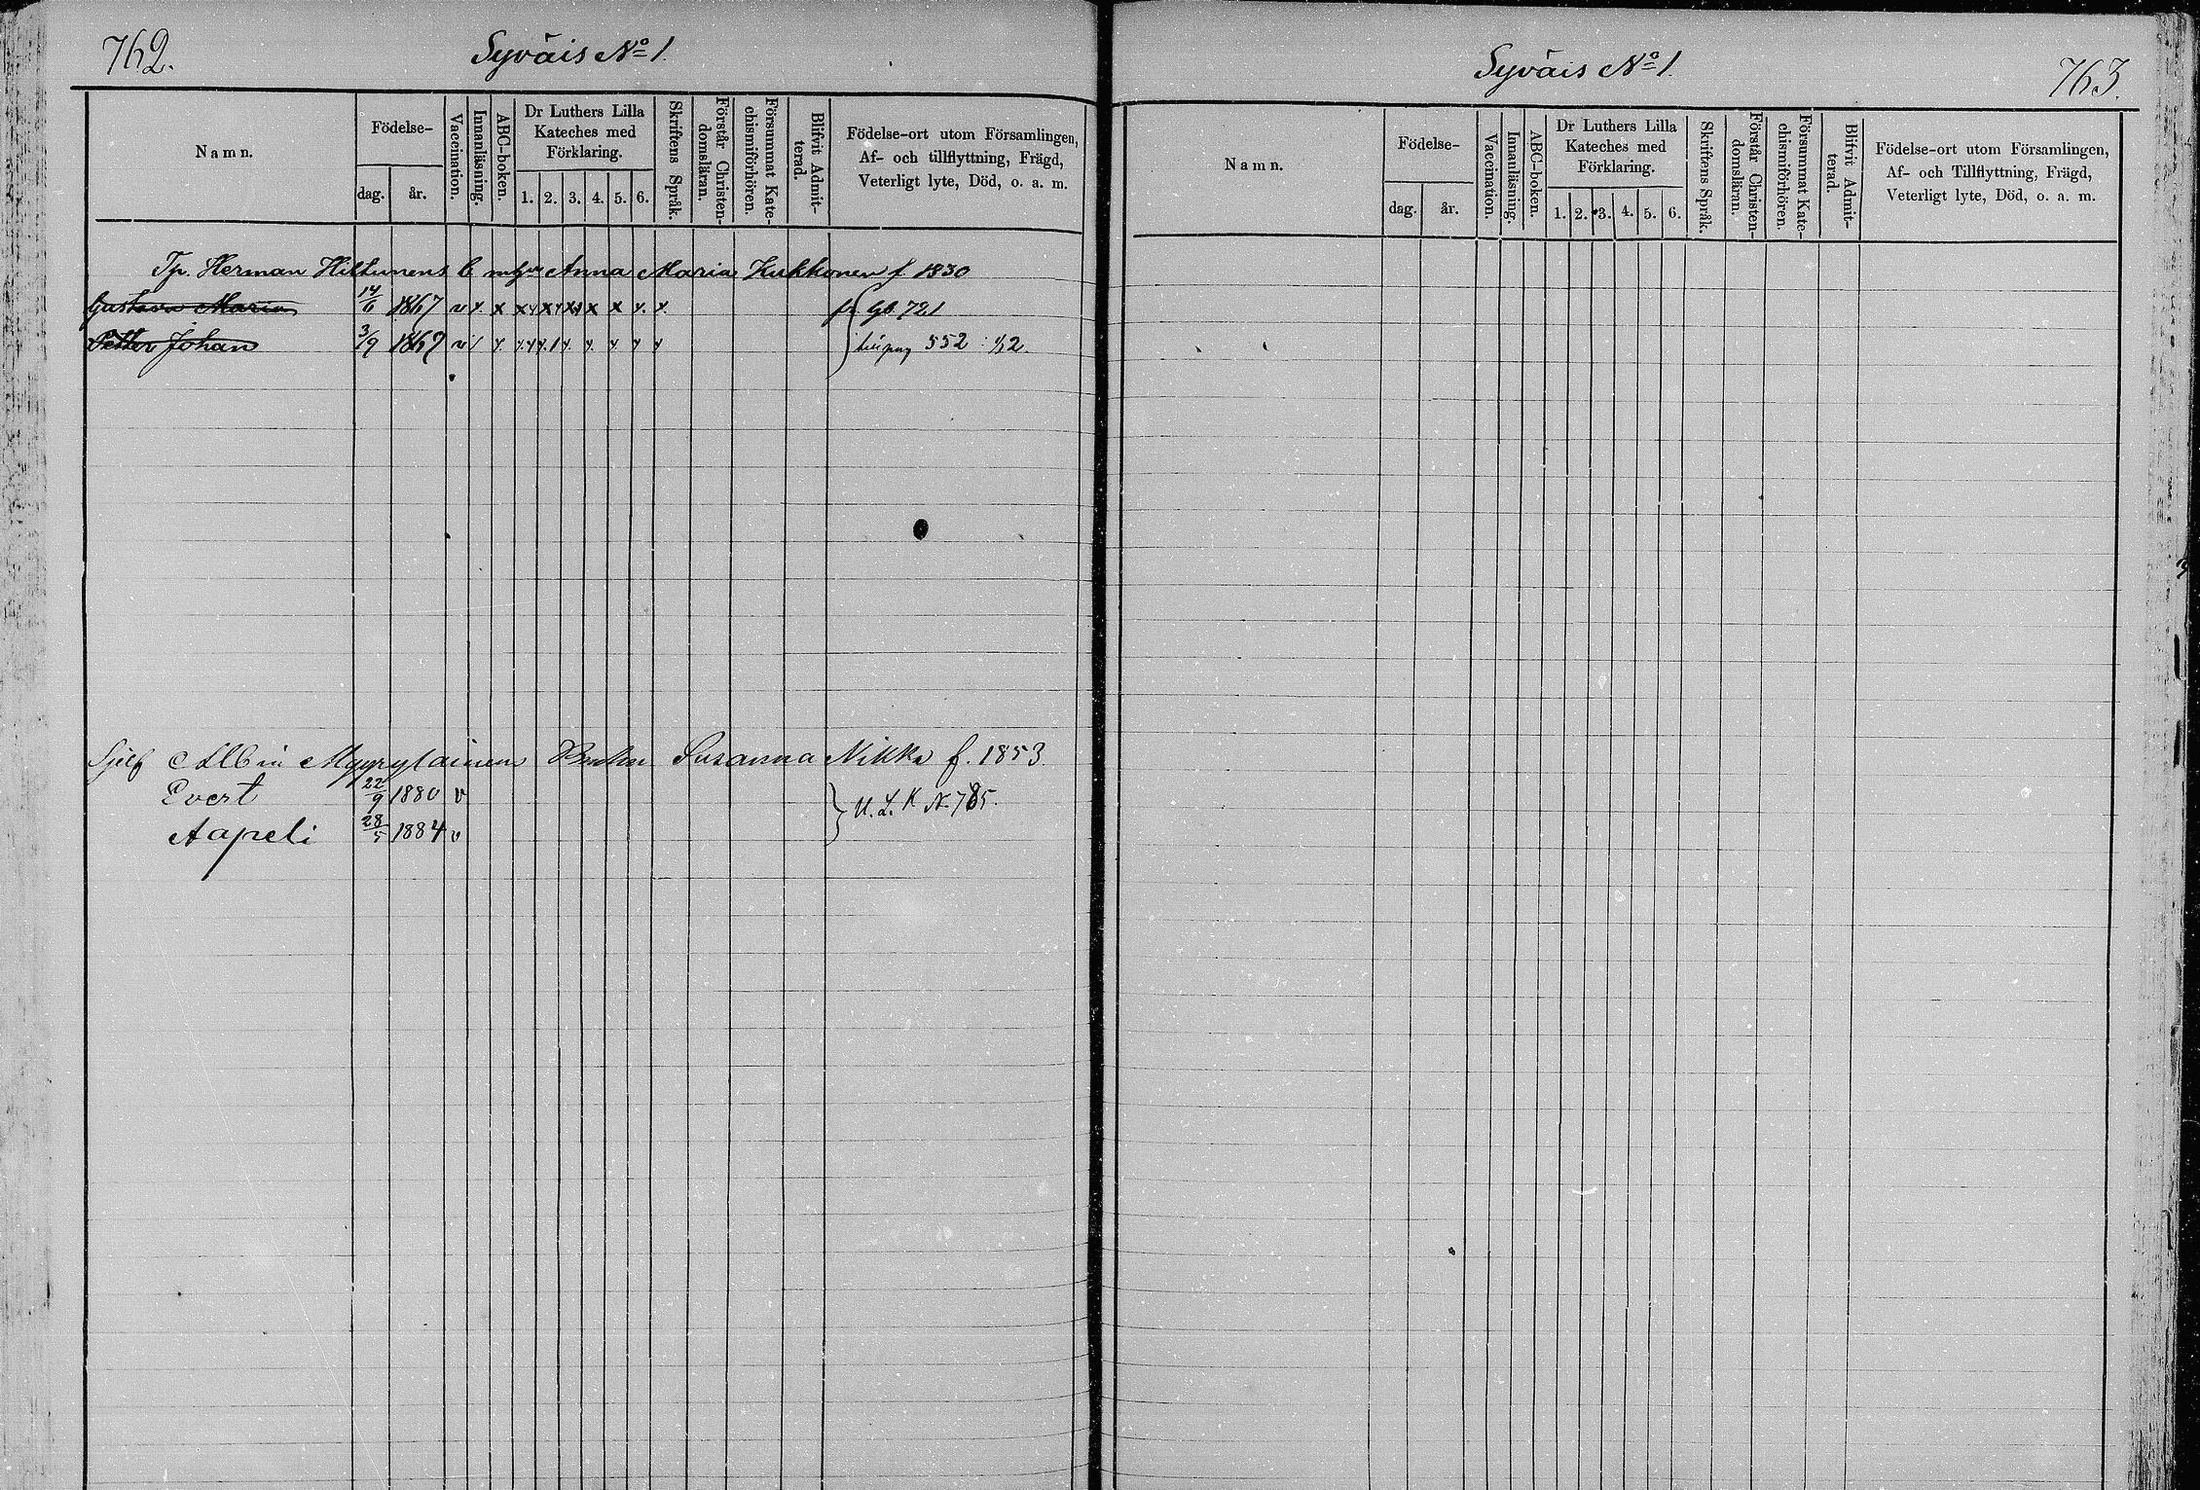 762.
Syväis No 1.
Namn.
Födelse-
dag.
år.
Vaccination.
Innanläsning.
ABC-boken.
Dr Luthers Lilla
Kateches med
Förklaring.
1. 2. 3. 4. 5. 6.
Skriftens Språk.
Förstår Christen-
domsläran.
Försummat Kate-
chismiförhören.
Blifvit Admit-
terad.
Födelse-ort utom Församlingen,
Af- och tillflyttning, Frägd,
Veterligt lyte, Död, o. a. m.
Tp. Herman Hiltunens Anna Maria Kukkonen f. 1830
Gustava Maria 14/6 1867 v x. x xx xx xx x x x. x. fr. Gb. 721
Petter Johan 3/9 1867 v 552 1/2.
Sjelf Albin Myyryläinen Susanna Nikka f. 1853
Evert 22/9 1880 v U. L. K N. 785.
Aapeli 28/5 1884 v
Syväis No 1.
763.
Namn.
Födelse-
dag.
år.
Vaccination.
Innanläsning.
ABC-boken.
Dr Luthers Lilla
Kateches med
Förklaring.
1. 2. 3. 4. 5. 6.
Skriftens Språk.
Förstår Christen-
domsläran.
Försummat Kate-
chismiförhören.
Blifvit Admit-
terad.
Födelse-ort utom Församlingen,
Af- och Tillflyttning, Frägd,
Veterligt lyte, Död, o. a. m.